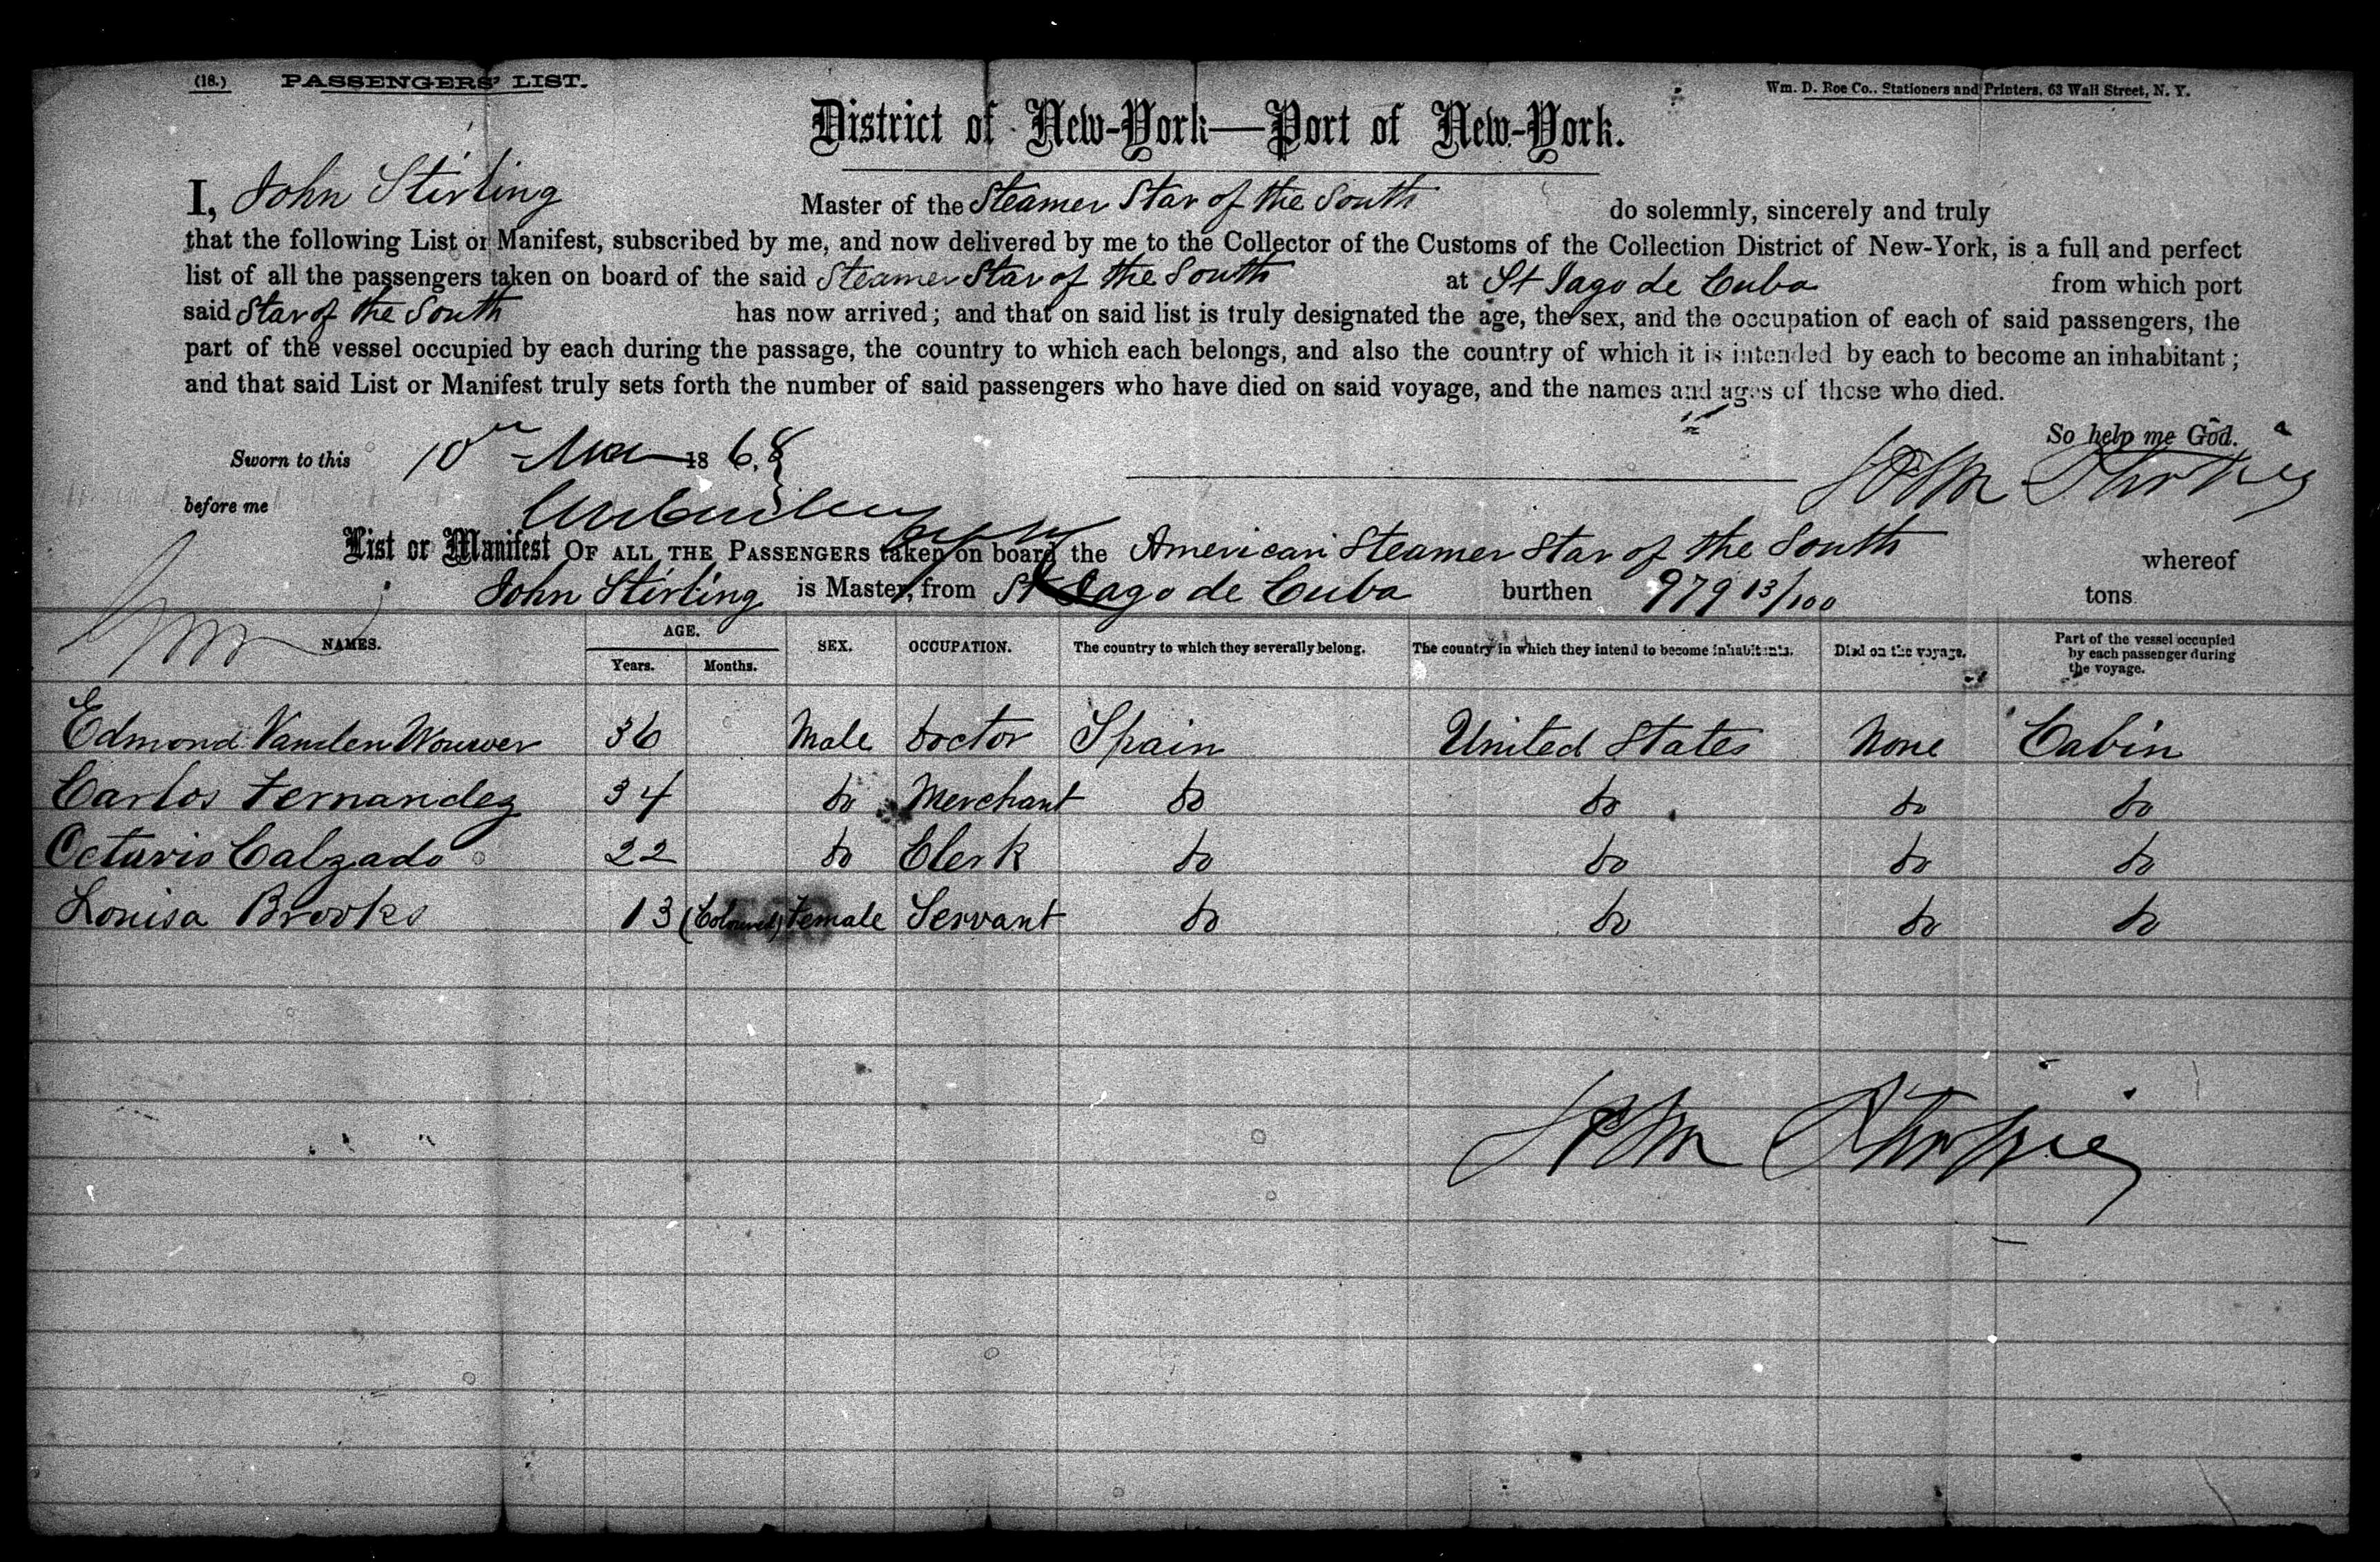 (18.) PASSENGERS' LIST.
Wm. D. Roe Co., Stationers and Printers, 63 Wall Street, N. Y.
District of New-York—Port of New-York.
I, John Stirling Master of the Steamer Star of the South do solemnly, sincerely and truly
that the following List or Manifest, subscribed by me, and now delivered by me to the Collector of the Customs of the Collection District of New-York, is a full and perfect
list of all the passengers taken on board of the said Steamer Star of the South at St Iago de Cuba from which port
said Star of the South has now arrived; and that on said list is truly designated the age, the sex, and the occupation of each of said passengers, the
part of the vessel occupied by each during the passage, the country to which each belongs, and also the country of which it is intended by each to become an inhabitant;
and that said List or Manifest truly sets forth the number of said passengers who have died on said voyage, and the names and ages of those who died.
So help me God.
Sworn to this 10 1868
John Stirling
before me
List or Manifest OF ALL THE PASSENGERS taken on board the American Steamer Star of the South whereof
John Stirling is Master, from St Iago de Cuba burthen 979 13/100 tons
NAMES. AGE. Years. Months. SEX. OCCUPATION. The country to which they severally belong. The country in which they intend to become inhabitants. Died on the voyage. Part of the vessel occupied by each passenger during the voyage.
Edmond Vanden Wouwer 36 Male Doctor Spain United States None Cabin
Carlos Fernandez 34 do Merchant do do do do
Octavio Calzado 22 do Clerk do do do do
Louisa Brooks 13 (Coloured) Female Servant do do do do
John Stirling